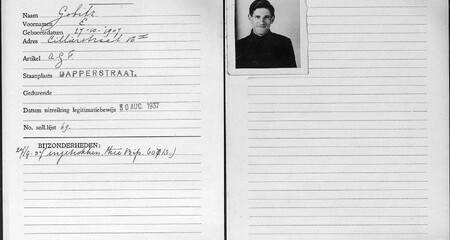 Naam Gobitz
Voornamen E
Geboortedatum 27-10-1907
Adres
Artikel a.g.f.
Staanplaats DAPPERSTRAAT.
Gedurende
Datum uitreiking legitimatiebewijs 30 AUG. 1937
No. soll.lijst 69.
BIJZONDERHEDEN:
ingetrokken.